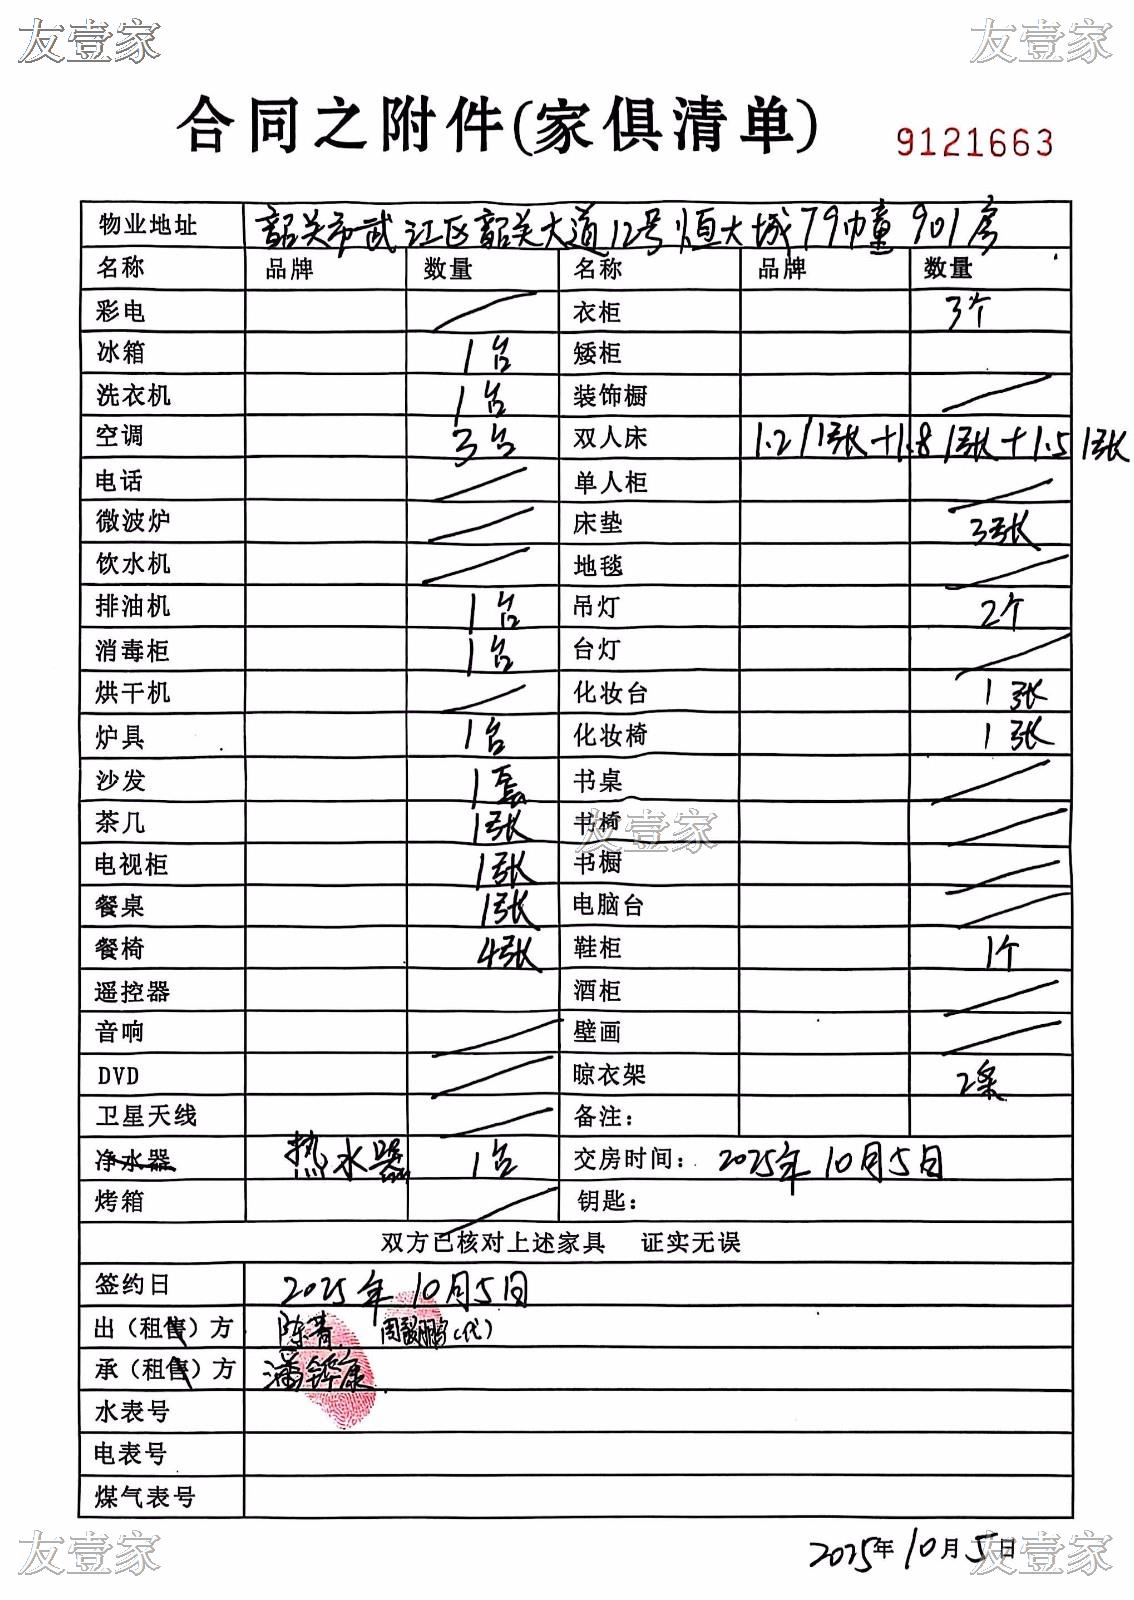 友壹家 友壹家
合同之附件(家俱清单) 9121663
物业地址 韶关市武江区韶关大道12号恒大城79幢901房
名称 品牌 数量 名称 品牌 数量
彩电 衣柜 3个
冰箱 1台 矮柜
洗衣机 1台 装饰橱
空调 3台 双人床 1.2/1张+1.8 1张+1.5 1张
电话 单人柜
微波炉 床垫 3张
饮水机 地毯
排油机 1台 吊灯 2个
消毒柜 1台 台灯
烘干机 化妆台 1张
炉具 1台 化妆椅 1张
沙发 1套 书桌
茶几 1张 书椅
友壹家
电视柜 1张 书橱
餐桌 1张 电脑台
餐椅 4张 鞋柜 1个
遥控器 酒柜
音响 壁画
DVD 晾衣架 2条
卫星天线 备注：
净水器 热水器 1台 交房时间： 2025年10月5日
烤箱 钥匙：
双方已核对上述家具 证实无误
签约日 2025年10月5日
出（租售）方 陈青 周毅鹏(代)
承（租售）方 潘铧康
水表号
电表号
煤气表号
2025年10月5日
友壹家 友壹家